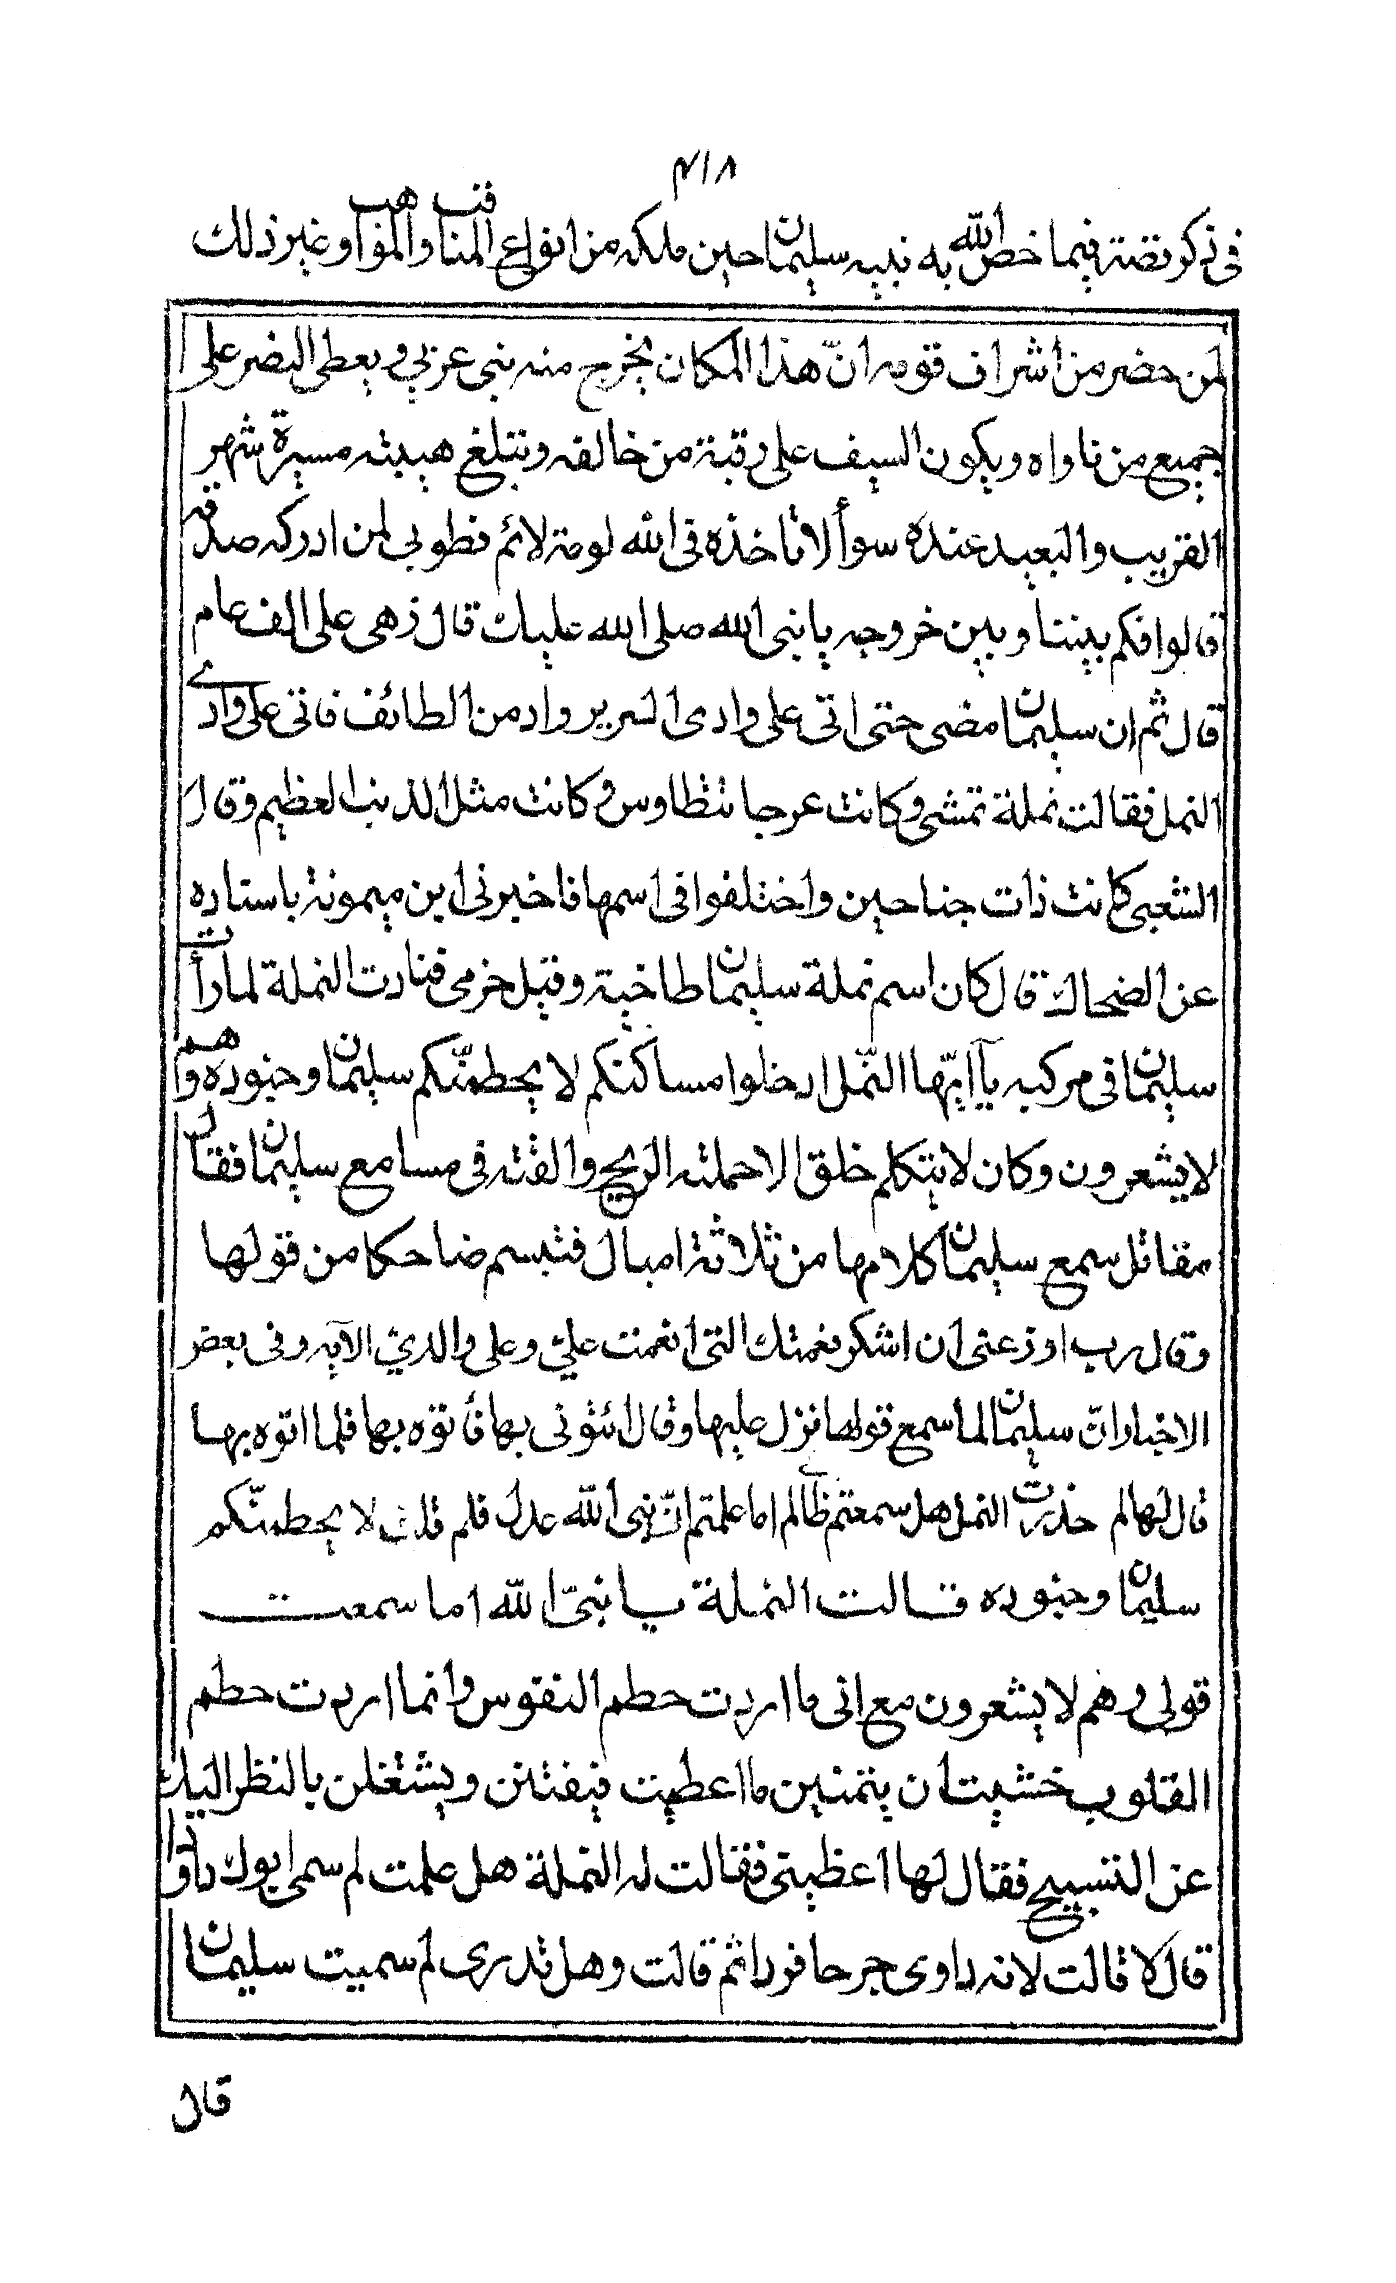 ٤١٨
فى ذكر قصة فيما خص الله به نبيه سليمان حين ملكه من انواع المناقب والمواهب وغير ذلك
لمن حضر من اشراف قومه انّ هذا المكان يخرج منه نبى عربي ويعطى النصر على
جميع من ناواه ويكون السيف على رقبة من خالفه وتبلغ هيبته مسيرة شهر
القريب والبعيد عنده سوأ لا تاخذه فى الله لومة لائم فطوبى لمن ادركه صدقه
قالوا فكم بيننا وبين خروجه يا نبى الله صلى الله عليك قال زهى على الف عام
قال ثم ان سليمان مضى حتى اتى على وادى السرير واد من الطائف فاتى على وادى
النمل فقالت نملة تمشى وكانت عرجا تتطاوس وكانت مثل الذئب العظيم وقال
الشعبى كانت ذات جناحين واختلفوا فى اسمها فاخبرنى ابن ميمونة باسناده
عن الضحاك قال كان اسم نملة سليمان طاخية وقيل خرمى فنادت النملة لما رأت
سليمان فى مركبه يآ ايّها النّمل ادخلوا مساكنكم لا يحطمنّكم سليمان وجنوده وهم
لا يشعرون وكان لا يتكلم خلق الا حملته الريح والقته فى مسامع سليمان فقال
مقاتل سمع سليمان كلامها من ثلاثة اميال فتبسم ضاحكا من قولها
وقال رب اوزعنى ان اشكر نعمتك التى انعمت عليّ وعلى والديّ الآيه وفى بعض
الاخبار انّ سليمان لما سمع قولها نزل عليها وقال ائتونى بها فأتوه بها فلما اتوه بها
قال لها لم حذرت النمل هل سمعتم ظالم اما علمتم انّ نبى الله عدل فلم قلت لا يحطمنّكم
سليمان وجنوده قالت النملة يا نبىّ الله اما سمعت
قولى وهم لا يشعرون مع انى ما اردت حطم النفوس وانما اردت حطم
القلوب خشيت ان يتمنين ما اعطيت فيفتتن ويشتغلن بالنظر اليك
عن التسبيح فقال لها اعظينى فقالت له النملة هل علمت لم سمى ابوك داود
قال لا قالت لانه داوى جرحا فودا ثم قالت وهل تدرى لم سميت سليمان
قال